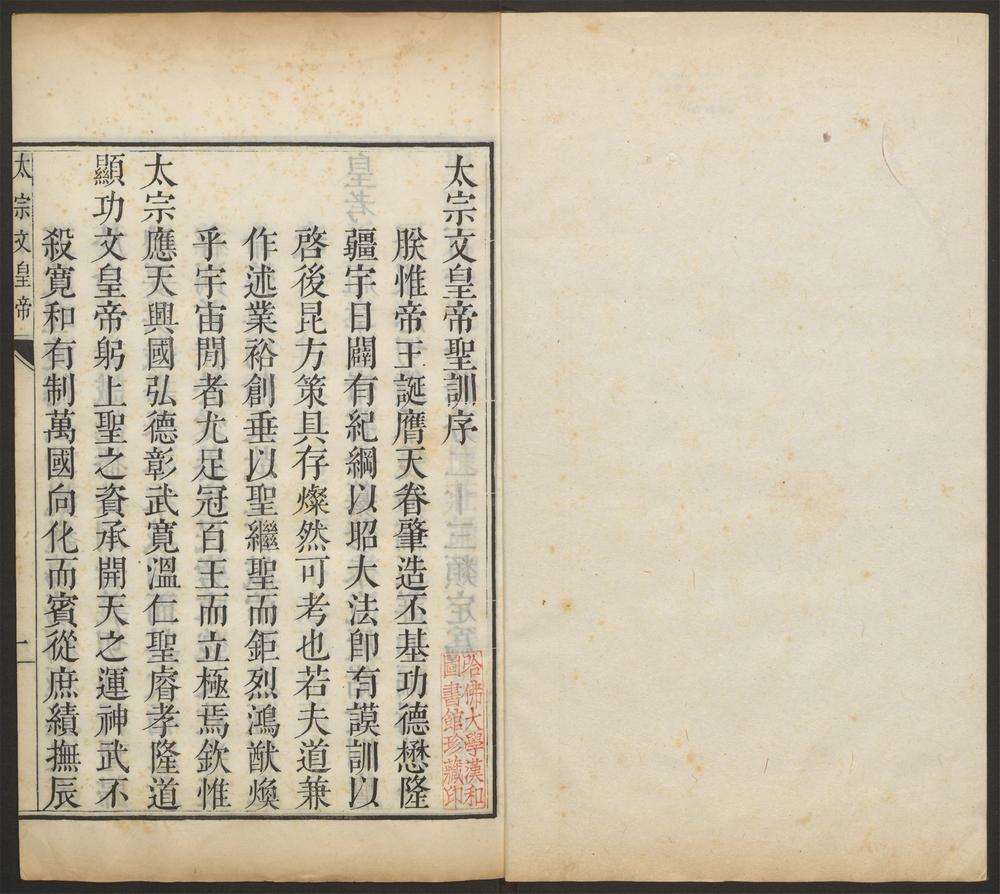 太宗文皇帝聖訓序
朕惟帝王誕膺天眷肇造丕基功德懋隆
疆宇日闢有紀綱以昭大法卽有謨訓以
啓後昆方策具存燦然可考也若夫道兼
作述業裕創垂以聖繼聖而鉅烈鴻猷煥
乎宇宙閒者尤足冠百王而立極焉欽惟
太宗應天興國弘德彰武寬溫仁聖睿孝隆道
顯功文皇帝躬上聖之資承開天之運神武不
殺寬和有制萬國向化而賓從庶績撫辰
太宗文皇帝
一
哈佛大學漢和
圖書館珍藏印